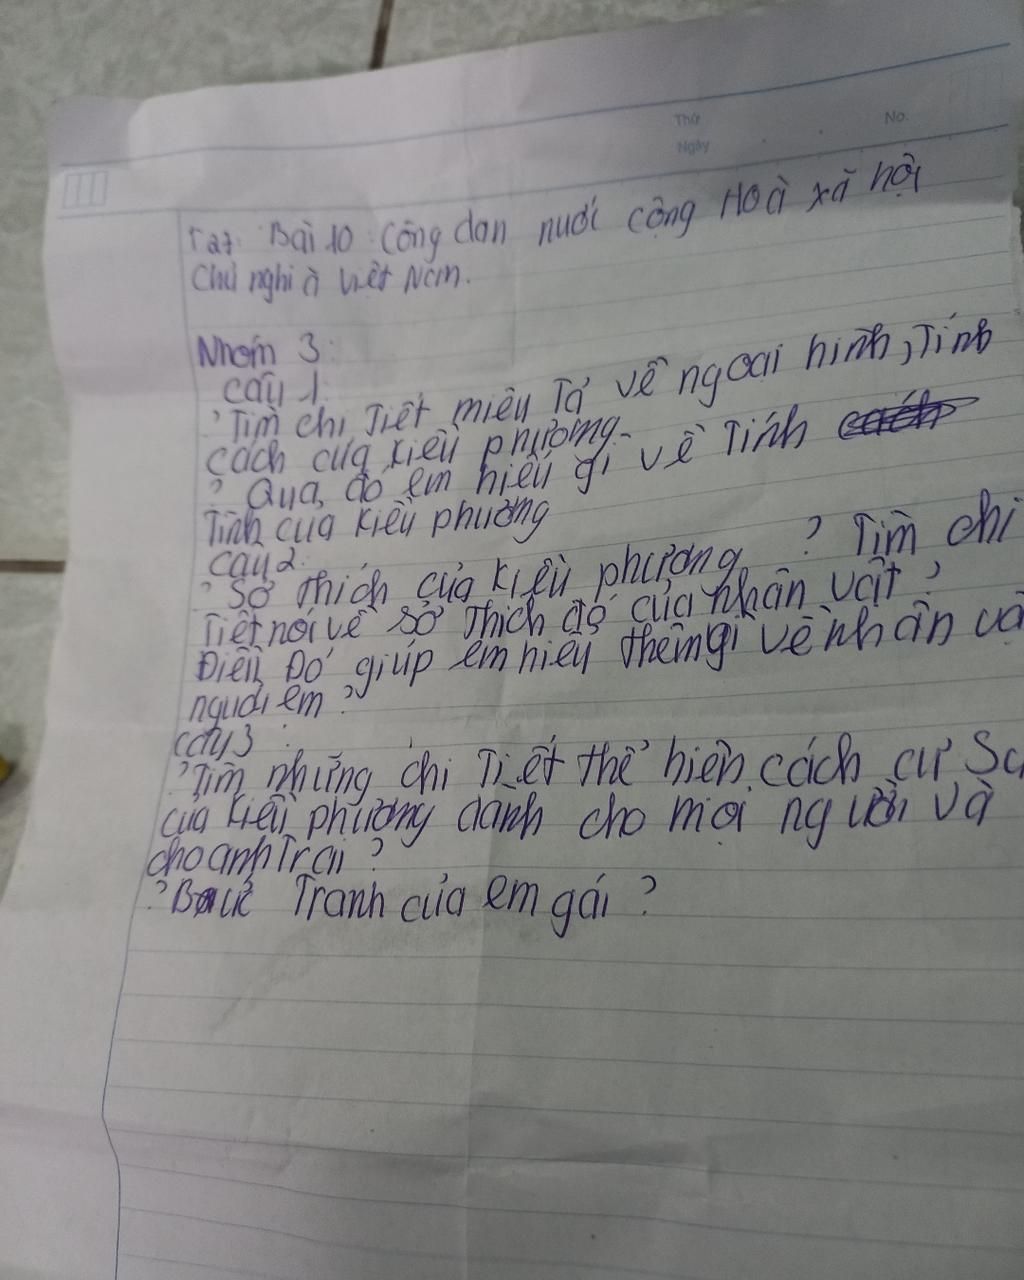 Thứ
No.
Ngày
T27: Bài 10: Công dan nước cộng Hoà xã hội
Chủ nghĩ à Việt Nam.
Nhóm 3:
câu 1:
? Tìm chi Tiết miêu Tả về ngoại hình, Tính
cách của kiều phương.
? Qua đó em hiểu gì về Tính
Tình của Kiều phương
câu 2:
? Sở thích của Kiều phương ? Tìm chi
Tiết nói về sở Thích đó của nhân vật?
Điều Đó giúp em hiểu thêm gì về nhân vậ
người em?
câu 3:
? Tìm những chi Tiết thể hiện cách cư Sử
của Kiều phương dành cho mọi người và
cho anh Trai?
? Bức Tranh của em gái?